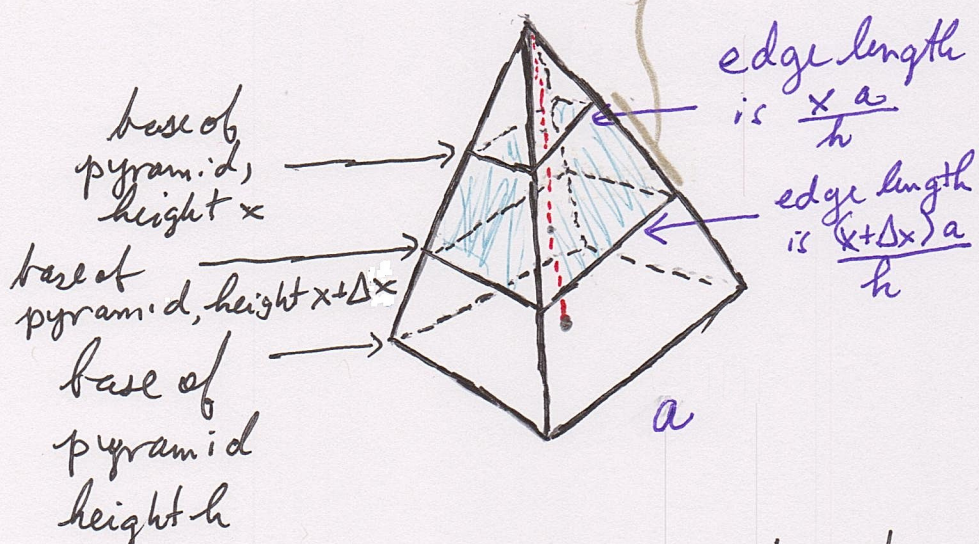 base of
pyramid,
height x
base of
pyramid, height x+Δx
base of
pyramid
height h
edge length
is x a
h
edge length
is (x+Δx) a
h
a